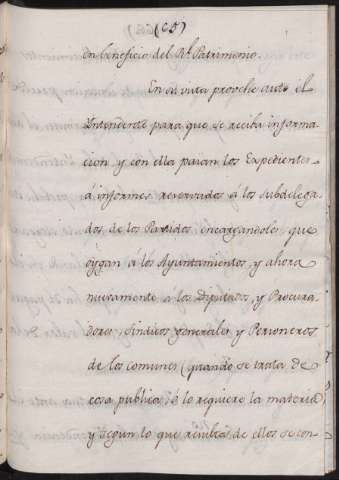 (65)
en beneficio del Rl. Patrimonio.
En su vista provehe auto el
Yntendente para que se reciba informa
cion, y con ella pasan los Expedientes
á informes reservados á los Subdelega
dos de los Partidos, encargandoles que
oygan á los Ayuntamientos, y ahora
nuevamente á los Diputados, y Procura
dores, Sindicos generales y Personeros
de los comunes (quando se trata de
cosa publica, ó lo requiere la materia)
y segun lo que resulta de ellos se con